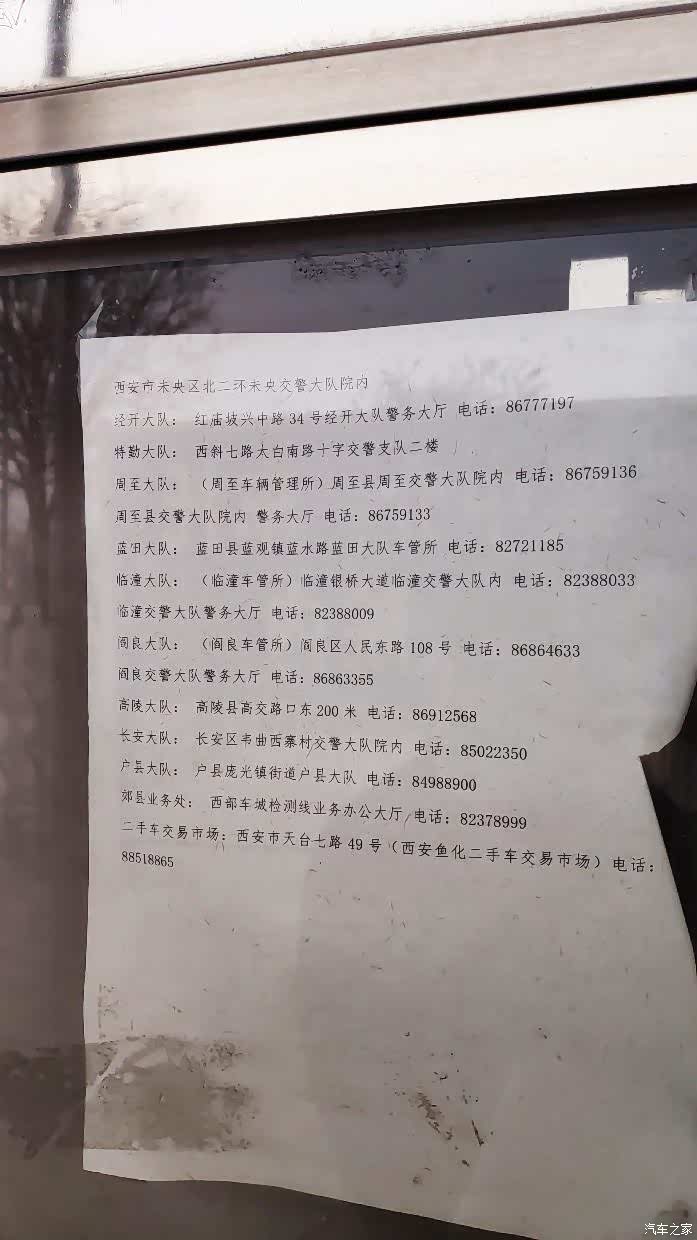 西安市未央区北二环未央交警大队院内
经开大队： 红庙坡兴中路34号经开大队警务大厅 电话：86777197
特勤大队： 西斜七路太白南路十字交警支队二楼
周至大队： （周至车辆管理所）周至县周至交警大队院内 电话：86759136
周至县交警大队院内 警务大厅 电话：86759133
蓝田大队： 蓝田县蓝观镇蓝水路蓝田大队车管所 电话：82721185
临潼大队： （临潼车管所）临潼银桥大道临潼交警大队内 电话：82388033
临潼交警大队警务大厅 电话：82388009
阎良大队： （阎良车管所）阎良区人民东路108号 电话：86864633
阎良交警大队警务大厅 电话：86863355
高陵大队： 高陵县高交路口东200米 电话：86912568
长安大队： 长安区韦曲西寨村交警大队院内 电话：85022350
户县大队： 户县庞光镇街道户县大队 电话：84988900
郊县业务处： 西部车城检测线业务办公大厅 电话：82378999
二手车交易市场：西安市天台七路49号（西安鱼化二手车交易市场）电话：
88518865
汽车之家